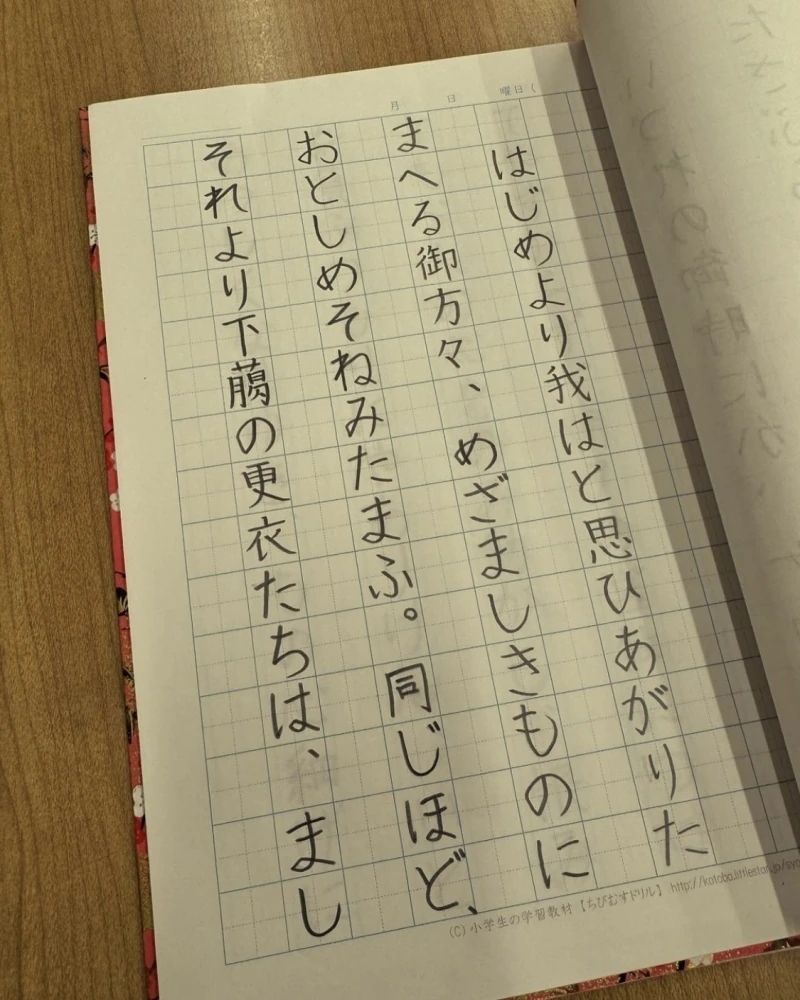 月 日 曜日(
はじめより我はと思ひあがりた
まへる御方々、めざましきものに
おとしめそねみたまふ。同じほど、
それより下﨟の更衣たちは、まし
(C)小学生の学習教材【ちびむすドリル】 http://kotoba.littlestar.jp/syo